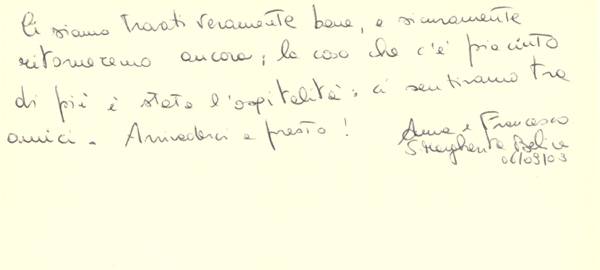 Ci siamo trovati veramente bene, e sicuramente
ritorneremo ancora; la cosa che c'è piaciuta
di più è stata l'ospitalità; ci sentivamo tra
amici. Arrivederci e presto!
Anna e Francesco
06/09/03